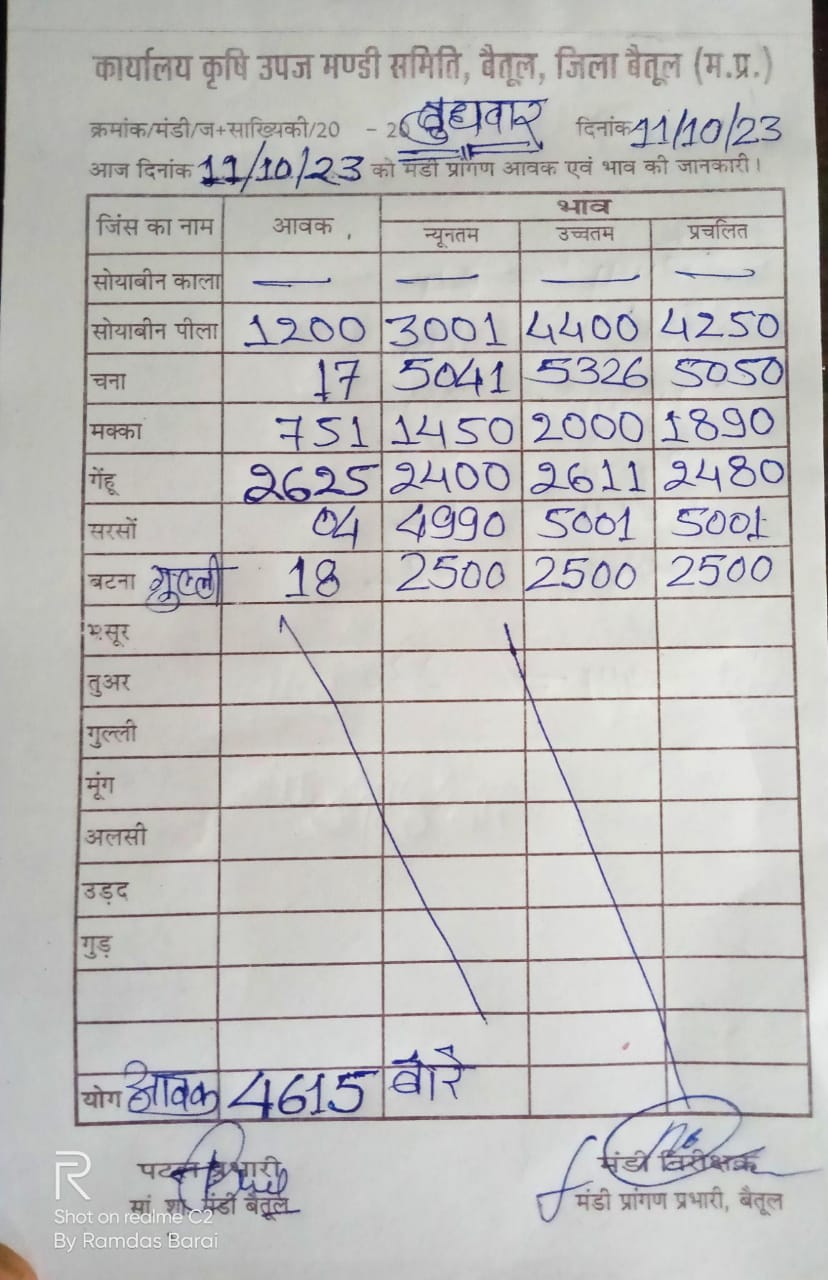 कार्यालय कृषि उपज मण्डी समिति, बैतूल, जिला बैतूल (म.प्र.)
क्रमांक/मंडी/ज+साख्यिकी/20 - 20 बुधवार दिनांक 11/10/23
आज दिनांक 11/10/23 को मंडी प्रांगण आवक एवं भाव की जानकारी।
जिंस का नाम आवक भाव
न्यूनतम उच्चतम प्रचलित
सोयाबीन काला — — — —
सोयाबीन पीला 1200 3001 4400 4250
चना 17 5041 5326 5050
मक्का 751 1450 2000 1890
गेंहू 2625 2400 2611 2480
सरसों 04 4990 5001 5001
बटना गुल्ली 18 2500 2500 2500
मसूर
तुअर
गुल्ली
मूंग
अलसी
उड़द
गुड़
योग आवक 4615 बोरे
प्रभारी मंडी निरीक्षक
मंडी बैतूल मंडी प्रांगण प्रभारी, बैतूल
Shot on realme C2
By Ramdas Barai